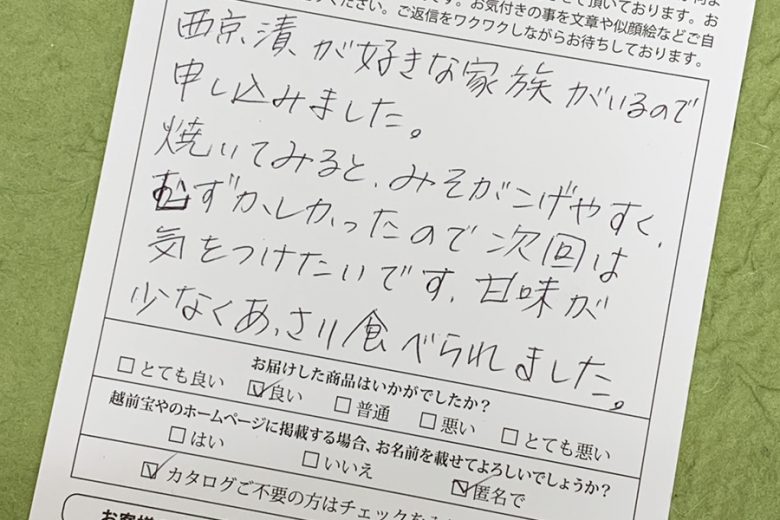 て頂いております。お
ください。ご返信をワクワクしながらお待ちしております。
です。お気付きの事を文章や似顔絵などご自
西京漬が好きな家族がいるので
申し込みました。
焼いてみると、みそがこげやすく、
むずかしかったので次回は
気をつけたいです。甘味が
少なくあっさり食べられました。
お届けした商品はいかがでしたか?
□とても良い ☑良い □普通 □悪い □とても悪い
越前宝やのホームページに掲載する場合、お名前を載せてよろしいでしょうか?
□はい □いいえ ☑匿名で
☑カタログご不要の方はチェックを
お客様